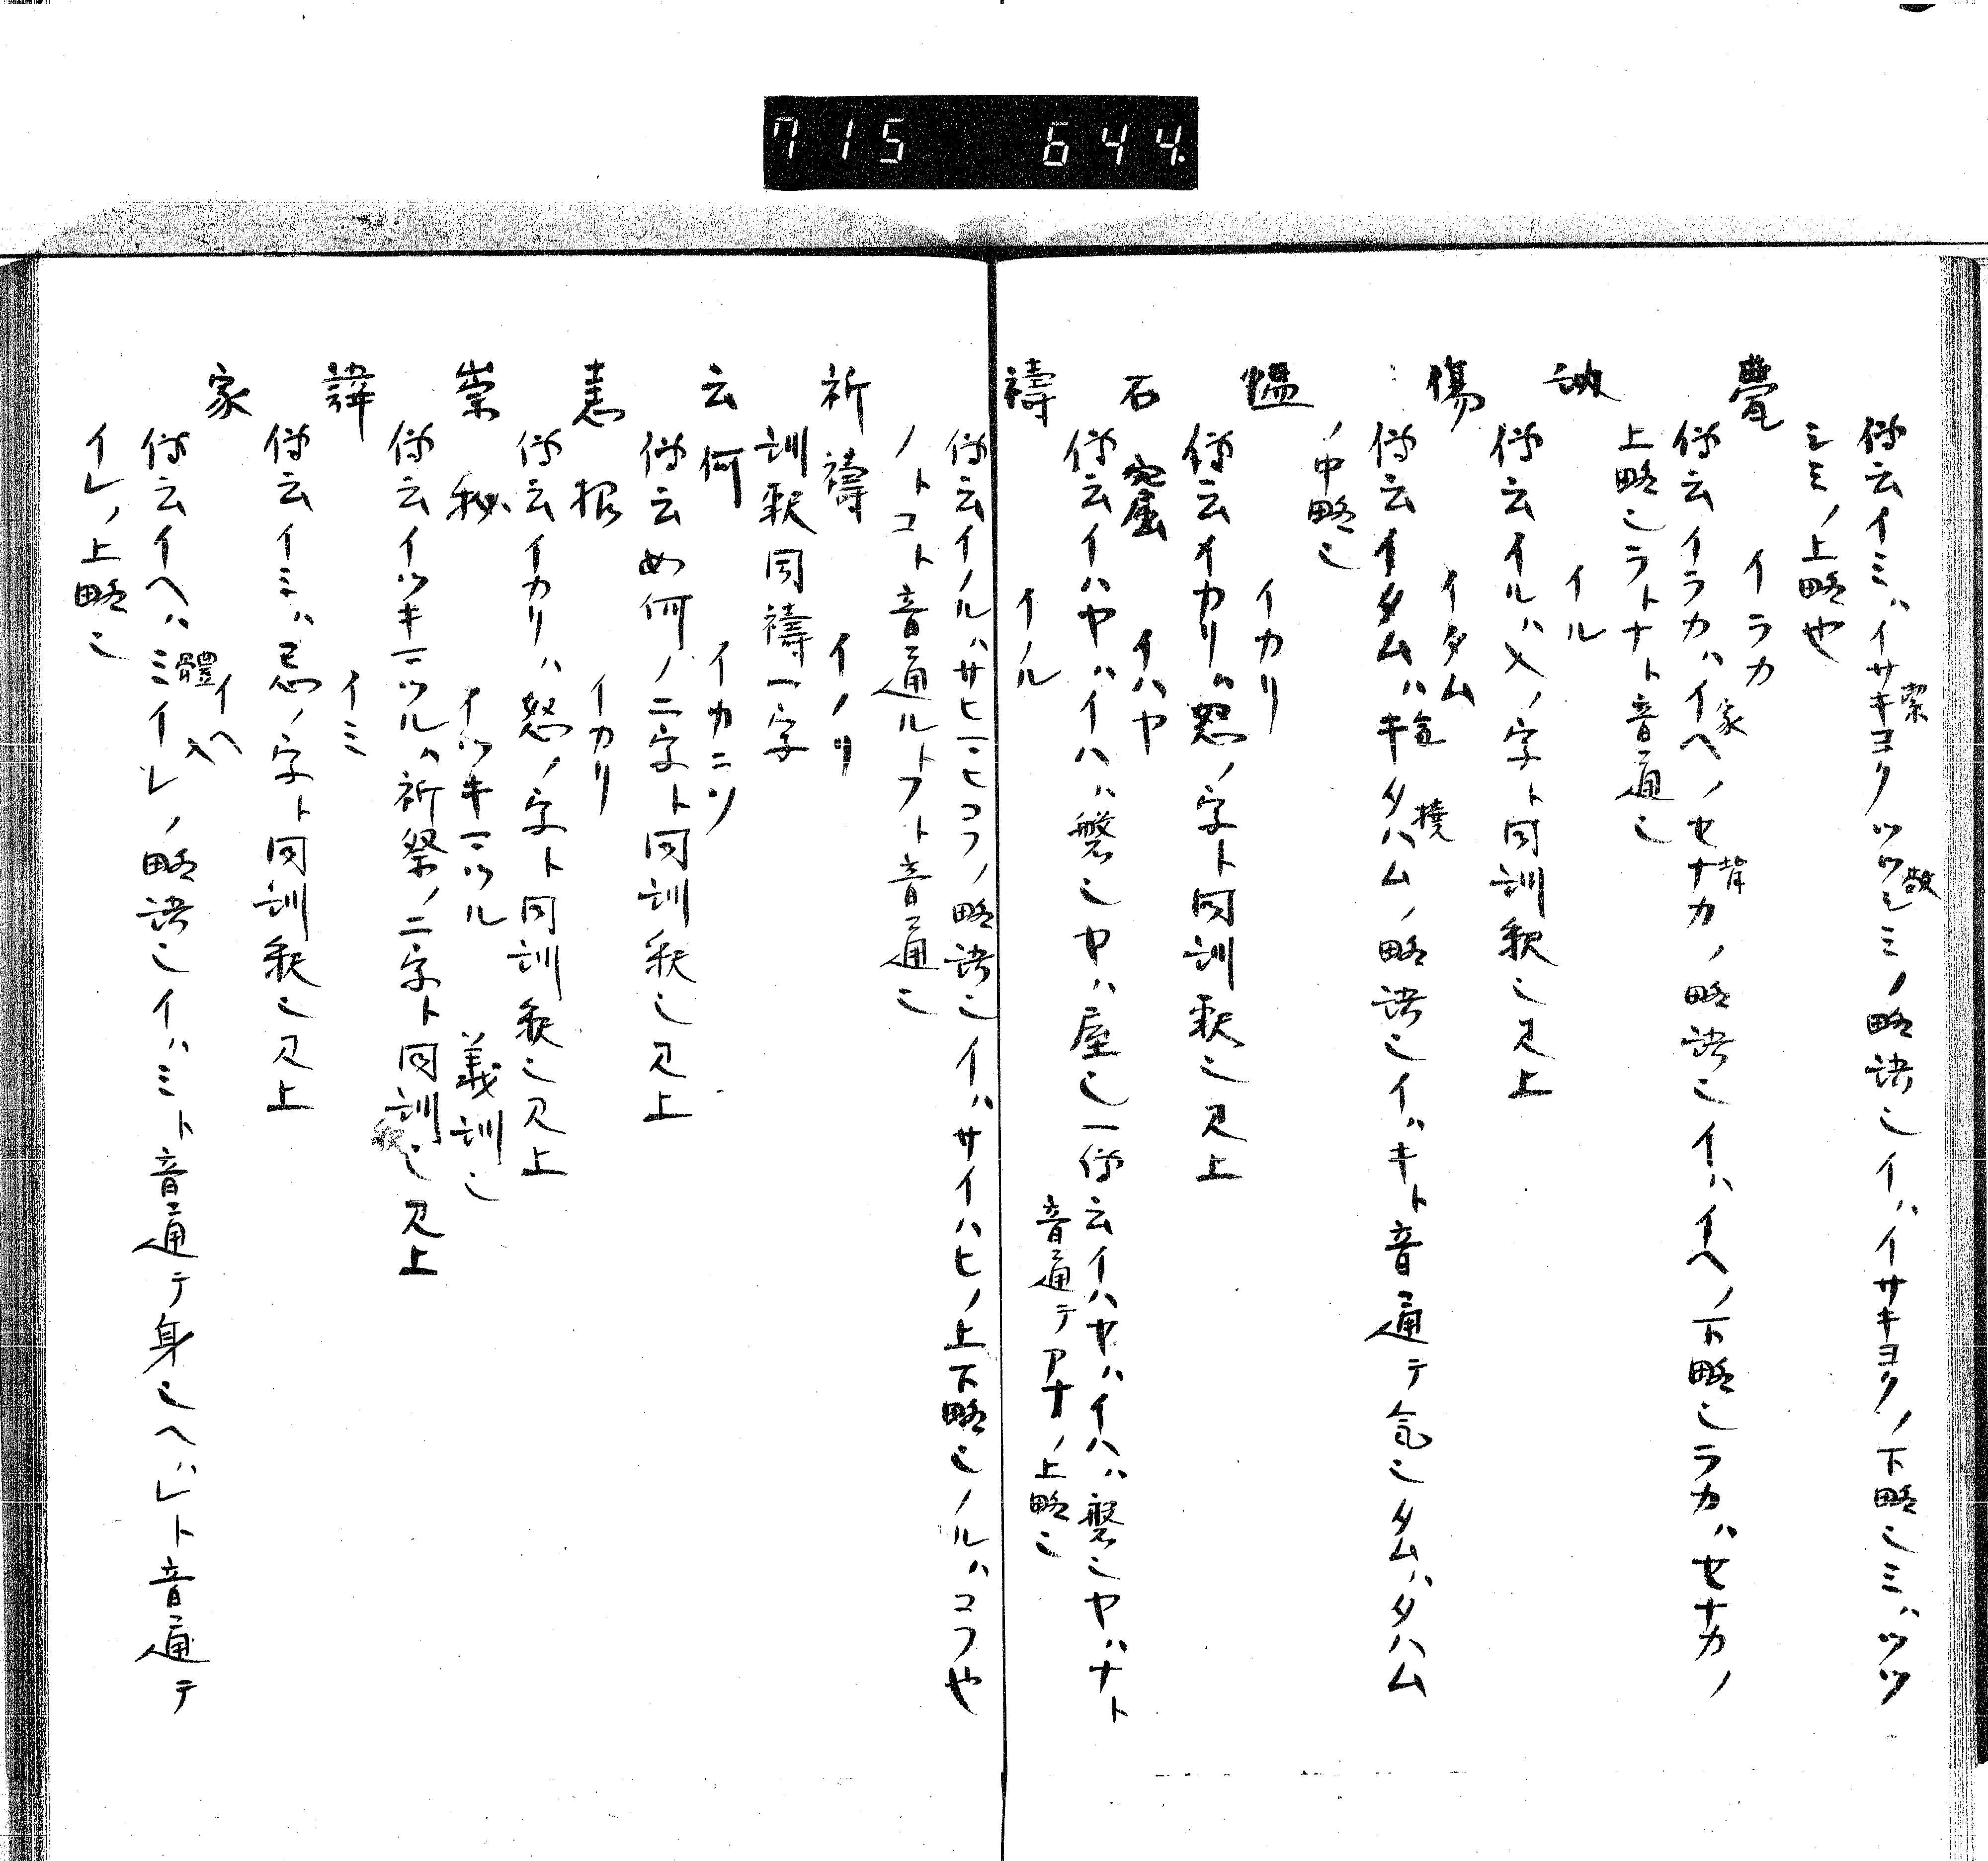 715 644
師云イミハイサキヨクツツシミノ略語ミイハイサキヨクノ下略ミミハツツ
シミノ上略也
甍 イラカ
師云イラカハイヘノセナカノ略語ミイハイヘノ下略ミラカハセナカノ
上略ミラトナト音通ミ
訥 イル
師云イルハ入ノ字ト同訓釈ミ見上
傷 イタム
師云イタムハキタハムノ略語ミイハキト音通テ気ミタムハタハム
ノ中略ミ
慍 イカリ
師云イカリハ怒ノ字ト同訓釈ミ見上
石窟 イハヤ
師云イハヤハイハハ磐ミヤハ屋ミ一師云イハヤハイハハ磐ミヤハナト
音通テアナノ上略ミ
禱 イノル
師云イノルハサヒハヒコフノ略語ミイハサイハヒノ上下略ミノルハコフや
ノトコト音通ルトフト音通ミ
祈禱 イノリ
訓釈同禱一字
云何 イカニソ
師云如何ノ二字ト同訓釈ミ見上
恚恨 イカリ
師云イカリハ怒ノ字ト同訓釈ミ見上
崇秘 イツキマツル 義訓ミ
師云イツキマツルハ祈祭ノ二字ト同訓ミ見上
諱 イミ
師云イミハ忌ノ字ト同訓釈ミ見上
家 イヘ
師云イヘハミイレノ略語ミイハミト音通テ身ミヘハレト音通テ
イレノ上略ミ